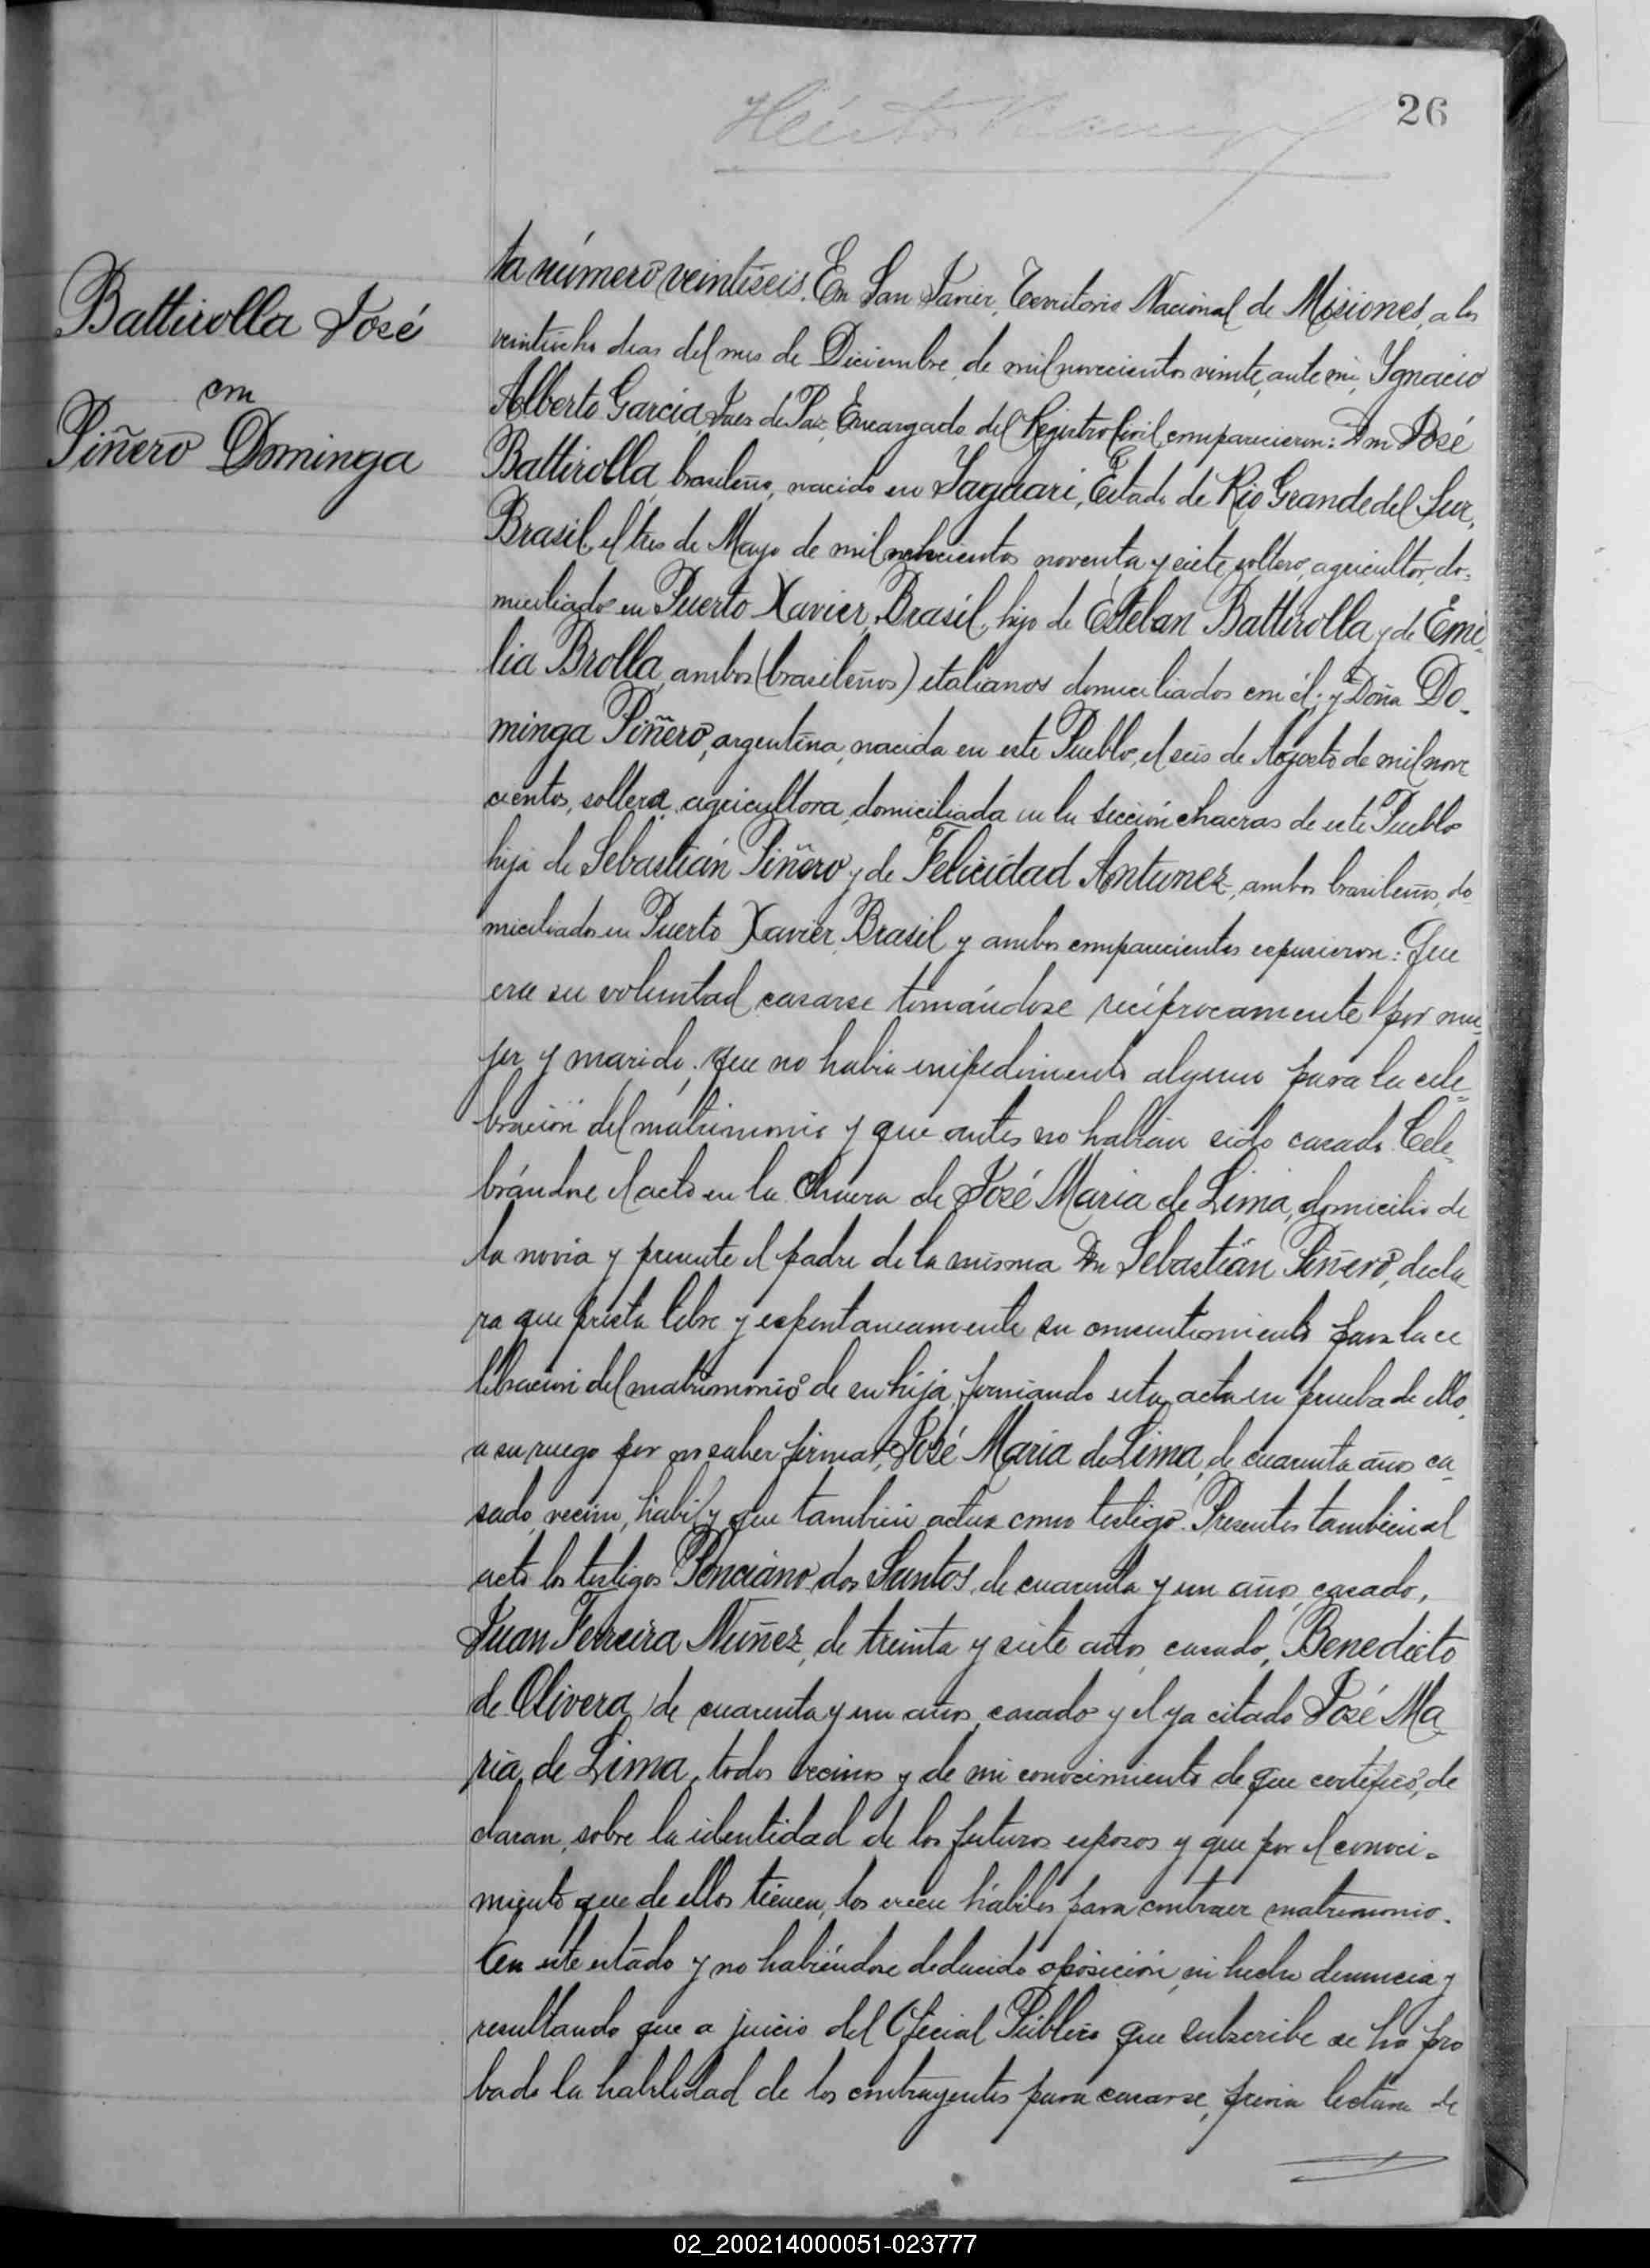 26
Héctor
Battirolla José
con
Piñero Dominga
ta número veintiseis. En San Javier, Territorio Nacional de Misiones, a los
veintiocho dias del mes de Diciembre de mil novecientos veinte, ante mi, Ygnacio
Alberto Garcia, Juez de Paz, Encargado del Registro Civil, comparecieron: Don José
Battirolla, brasileño, nacido en Jaguari, Estado de Rio Grande del Sur,
Brasil, el tres de Mayo de mil ochocientos noventa y siete, soltero, agricultor, do-
miciliado en Puerto Xavier, Brasil, hijo de Esteban Battirolla y de Emi-
lia Brolla, ambos (brasileños) italianos domiciliados con él; y Doña Do-
minga Piñero, argentina, nacida en este Pueblo, el seis de Agosto de mil nove
cientos, soltera, agricultora, domiciliada en la sección chacras de este Pueblo
hija de Sebastián Piñero y de Felicidad Antunez, ambos brasileños, do-
miciliados en Puerto Xavier, Brasil y ambos comparecientes expusieron: Que
era su voluntad casarse tomándose recíprocamente por mu-
jer y marido; que no habia impedimento alguno para la cele-
bración del matrimonio y que antes no habian sido casado. Cele-
brándose el acto en la Chacra de José Maria de Lima, domicilio de
la novia y presente el padre de la misma Dn Sebastián Piñero, decla
ra que presta libre y espontaneamente su consentimiento para la ce
lebracion del matrimonio de su hija, firmando esta acta en prueba de ello,
a su ruego por no saber firmar, José Maria de Lima, de cuarenta años ca-
sado, vecino, hábil y que tambien actua como testigo. Presentes tambien al
acto los testigos Ponciano dos Santos, de cuarenta y un años, casado,
Juan Ferreira Nuñez, de treinta y siete años, casado, Benedicto
de Olivera, de cuarenta y un años, casado y el ya citado José Ma-
ria de Lima, todos vecinos y de mi conocimiento de que certifico, de
claran, sobre la identidad de los futuros esposos y que por el conoci-
miento que de ellos tienen, los creen hábiles para contraer matrimonio.
En este estado y no habiéndose deducido oposición, ni hecho denuncia y
resultando que a juicio del Oficial Público que subscribe se ha pro
bado la habilidad de los contrayentes para casarse, previa lectura de
02_200214000051-023777